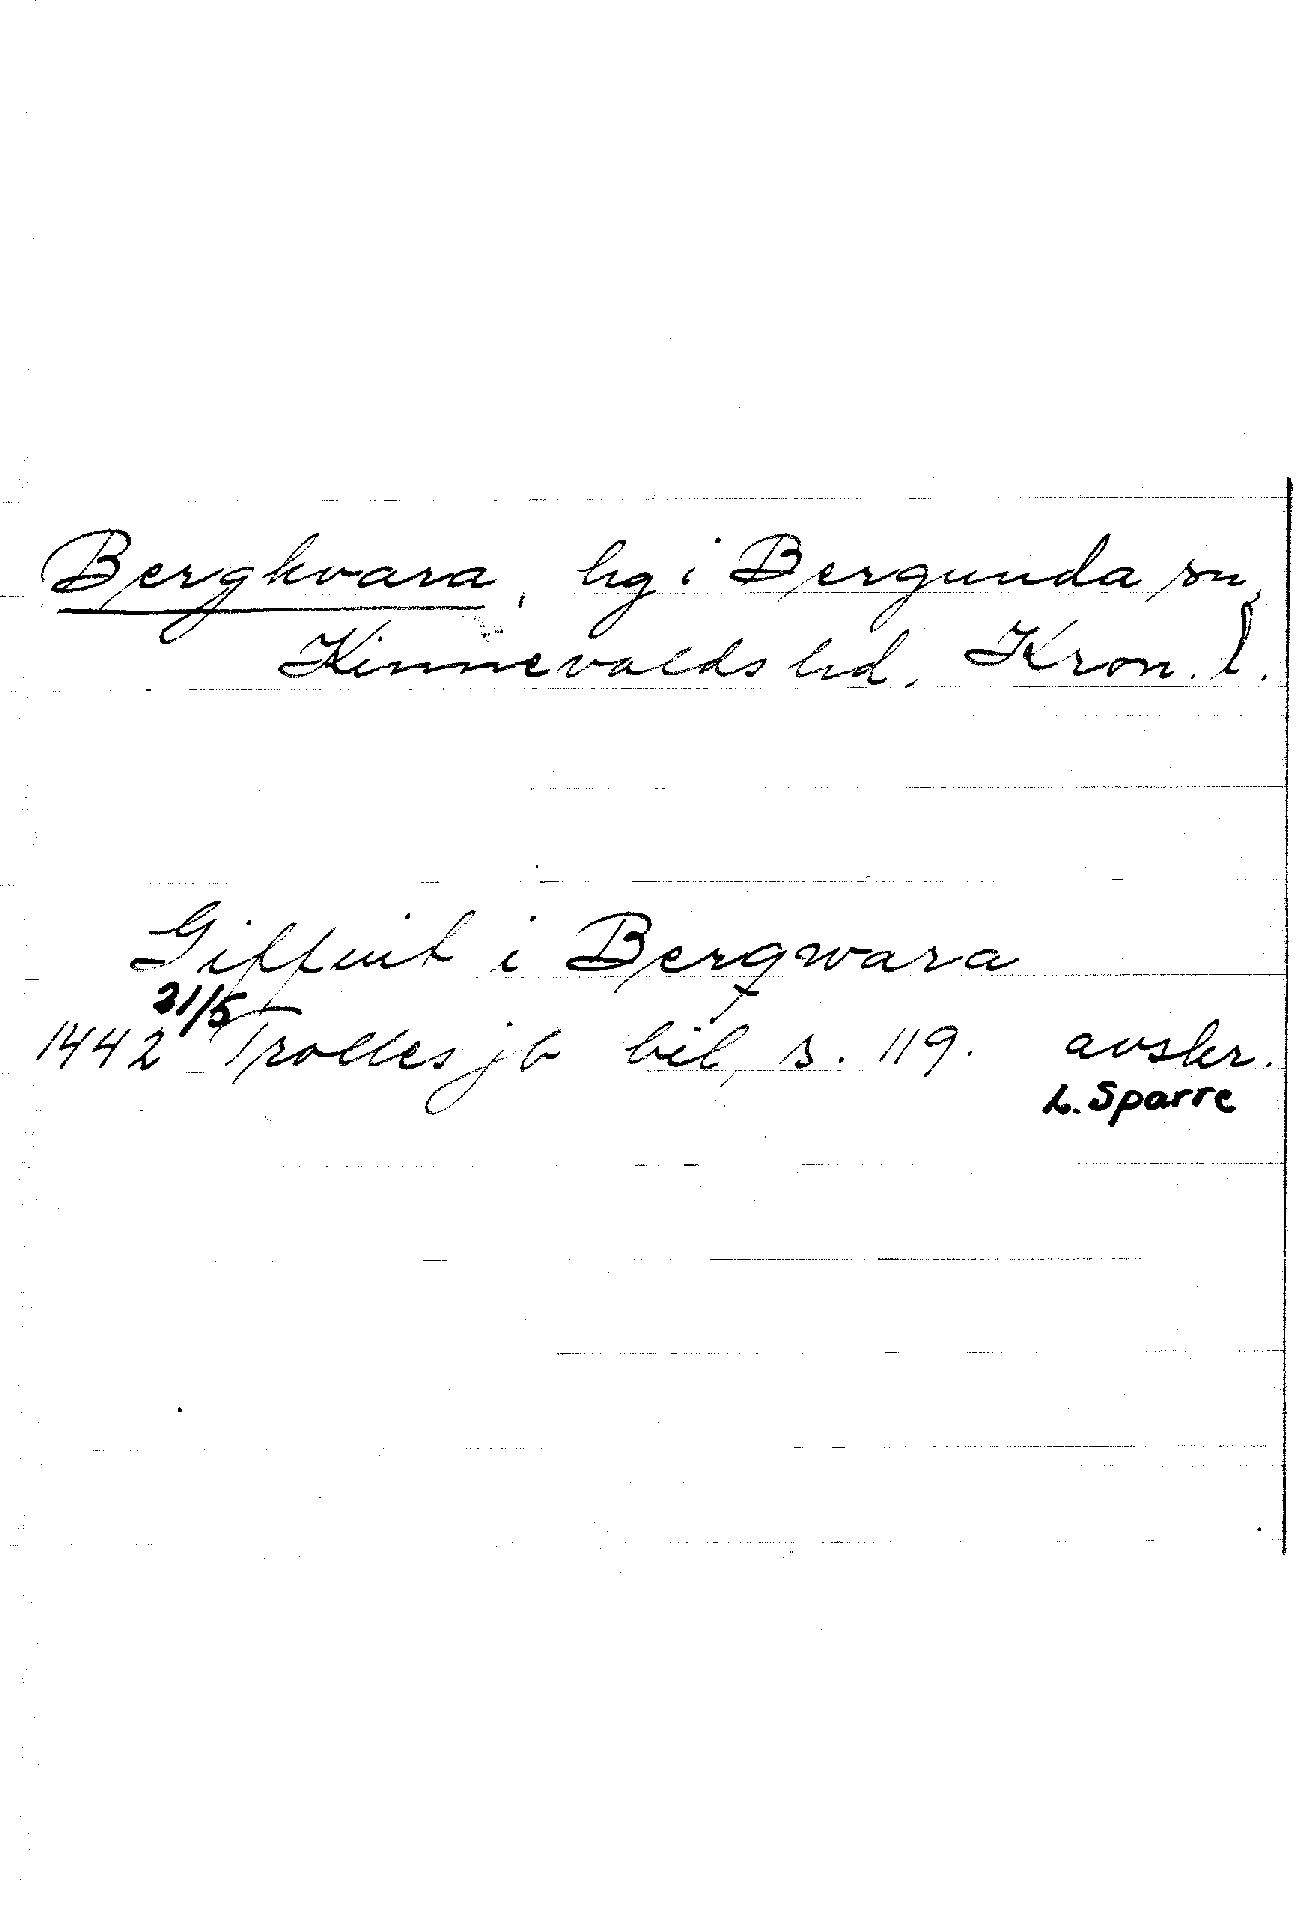 Bergkvara, hg i Bergunda sn,
Kinnevalds hd, Kron. l.
Giffuit i Bergwara
21/5
1442 Trolles jb bil, s. 119. avskr.
L. Sparre